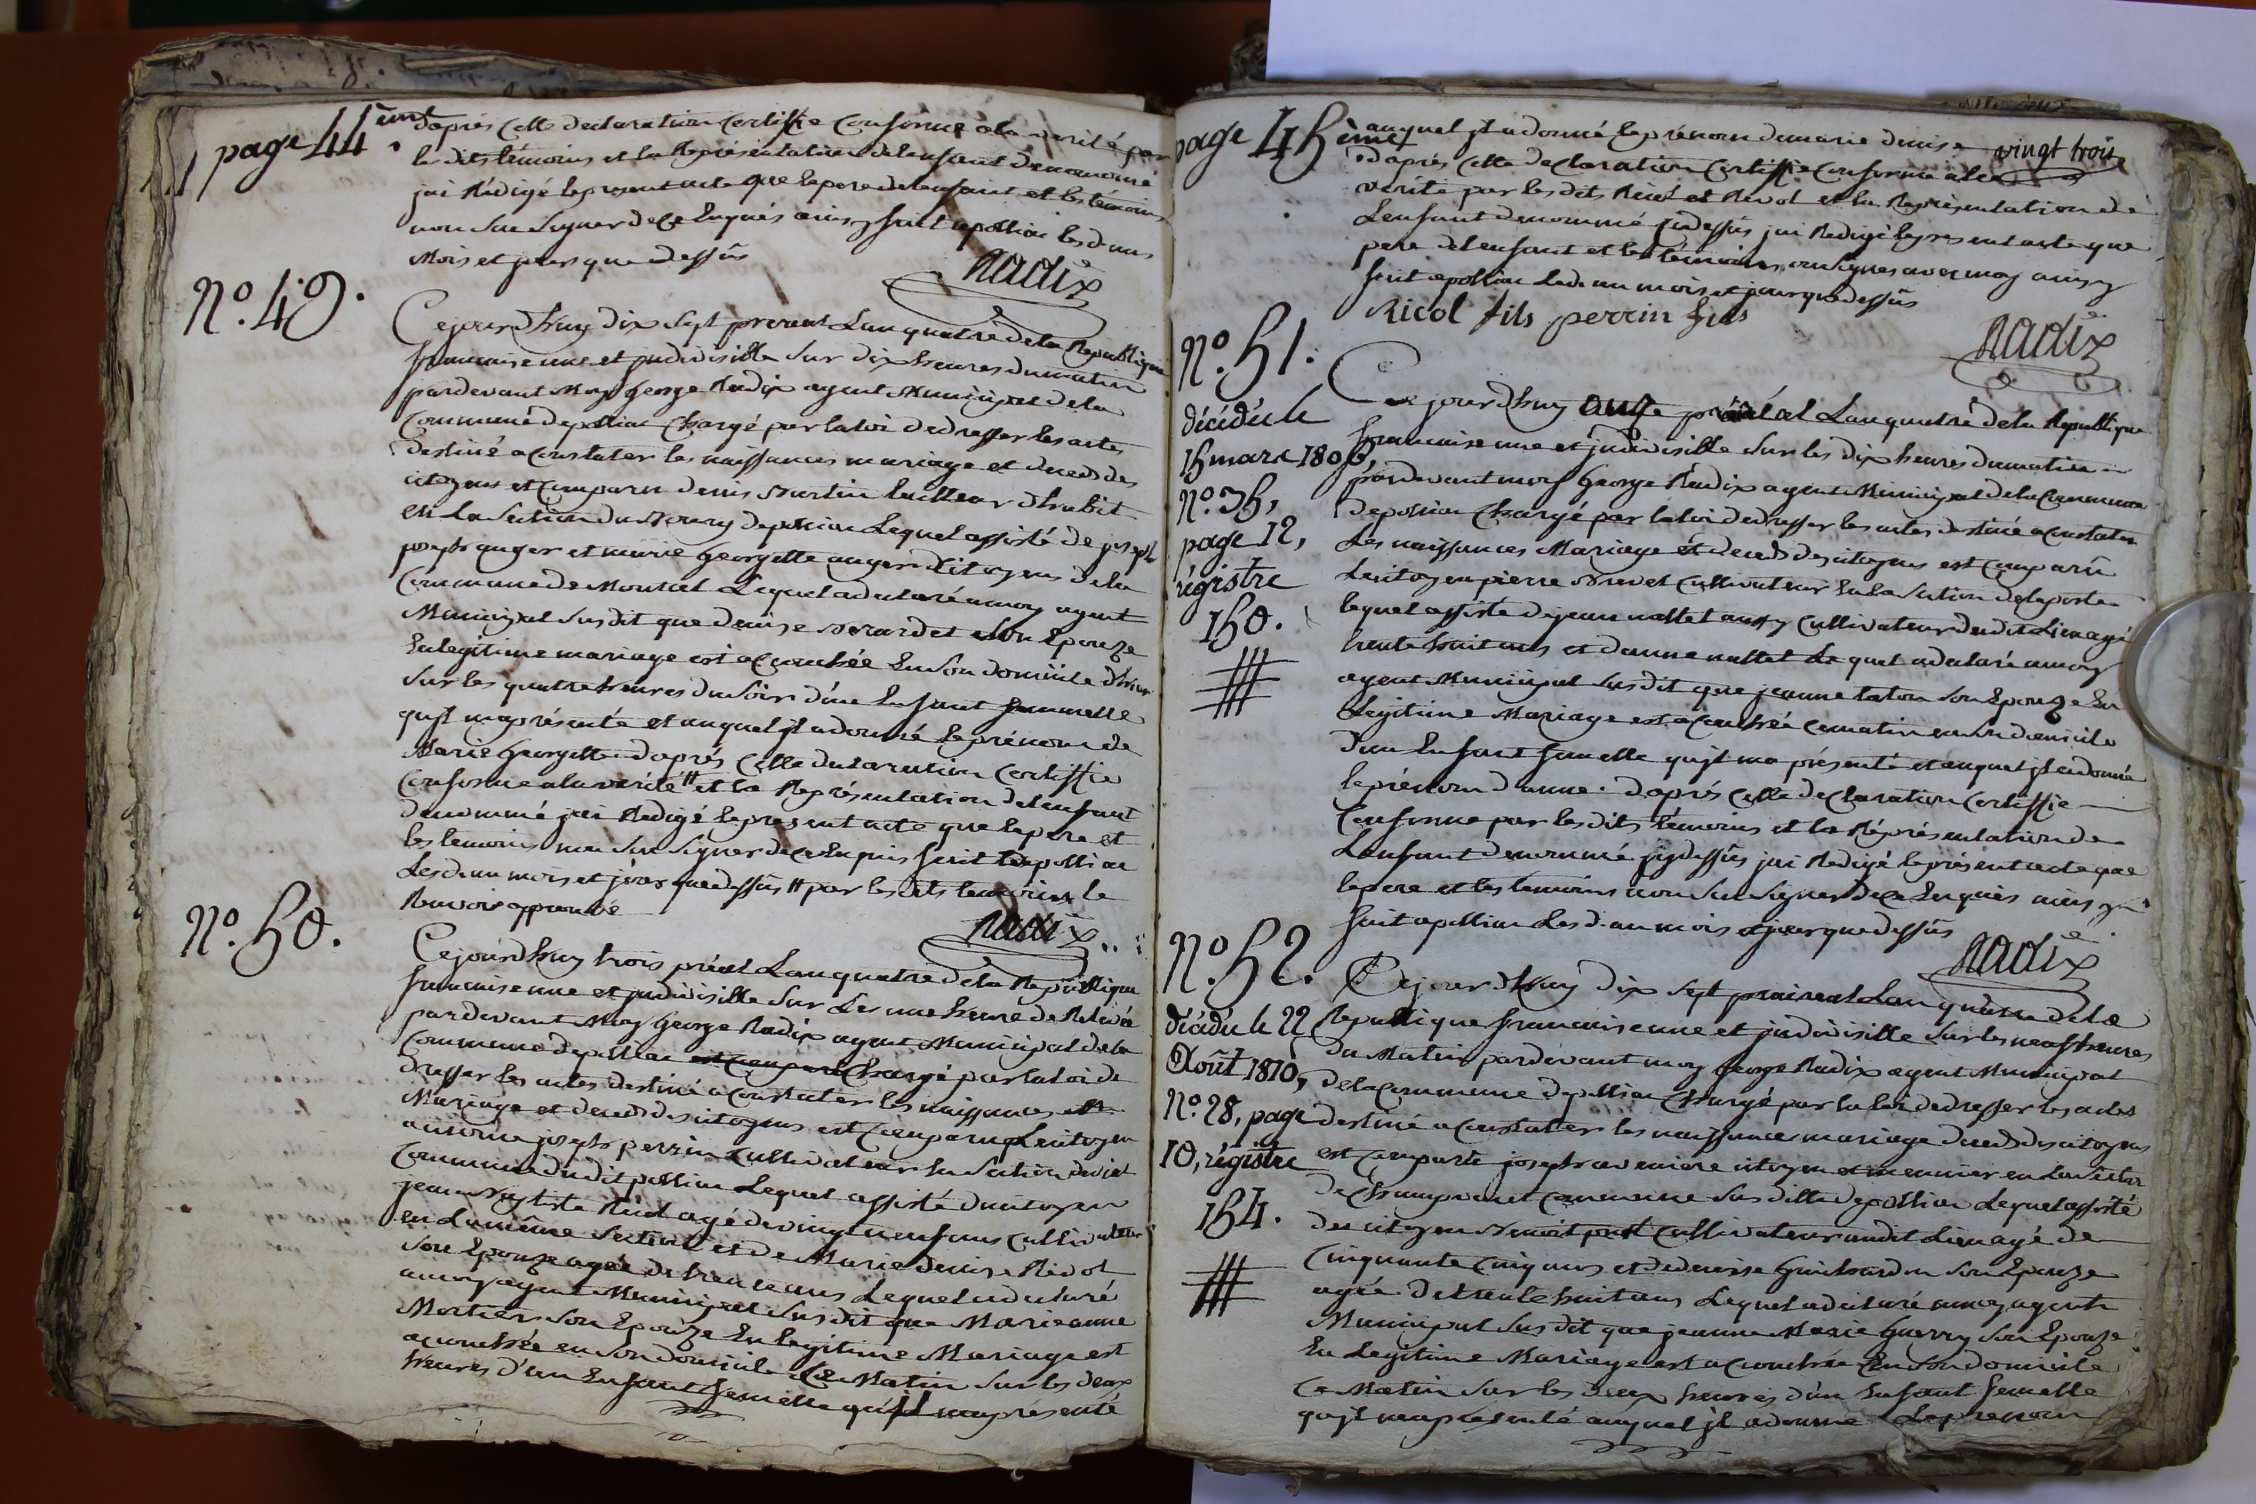 page 44ème
d'aprés cette declaration certiffie conforme a la verité par
les dits témoins et la Représentation de lenfant denommé
jai Rédigé le present acte que le pere de lenfant et les témoins
non Sue Signer de ce Enquis ainsy fait a pollion les d. an
Mois et jours que dessus
Radix
N.º 49.
Ce jourdhuy dix Sept prereal Lan quatre de la Republique
francaise une et jndivisible Sur dix heures du matin
pardevant Moy George Radix agent Municipal de la
Commune de pollion Chargé par la loi de dresser les actes
destiné a Constater les naissances mariage et deceds des
citoyens et Comparu denis
en la Section du depollion Lequel assisté de joseph
joseph auger et marie Georgette auger Citoyens de la
Commune de Lequel a declaré a moy agent
Municipal Susdit que denise son Epouze
En legitime mariage est acouchée En Son domicile d'hier
Sur les quatre heures du Soir d'une Enfant femmelle
qujl ma présenté et auquel jl a donné le prénom de
Marie Georgette d'aprés cette declaration Certiffie
Conforme a la vérité # et la Représentation de lenfant
denommé jai Redigé le present acte que le pere et
les temoins non Sue Signer de ce Enquis fait a pollion
Les d. an mois et jour que dessus # par les dits temoins le
Renvoie approuvé
Radix
N.º 50.
Ce jourdhuy trois préal Lan quatre de la République
francaise une et jndivisible Sur Les une heure de Relevée
par devant Moy George Radix agent Municipal de la
Commune de pollion Chargé par la loi de
dresser les actes destiné a Constater les naissances
Mariage et deceds des citoyens est Comparu Le citoyen
antoine joseph perrin Cultivateur En la Section
Commune du dit pollion Lequel assisté du citoyen
jean Baptiste agé de vingt neuf ans Cultivateur
en la même Section et de Marie denise
Son Epouze agée de trente ans Lequel a declaré
a moy agent Municipal Susdit que Marie anne
Mortier Son Epouze En legitime Mariage est
acouchée en Son domicile Ce Matin Sur les deux
heures d'un Enfant femelle qu'jl ma présenté
page 45ème
auquel jl a donné le prénom de marie denise
vingt trois
d'aprés cette declaration Certiffie Conforme a la
vérité par les dits et la Représentation de
Lenfant denommé jcy dessus jai Redigé le present acte que
pere de lenfant et les témoins on Signes avec moy ainsy
fait a pollion Led. an mois et jour que dessus
Ricol fils perrin fils
Radix
N.º 51.
décédée le
15 mars 1806,
N.º 35,
page 12,
régistre
150.
Ce jourdhuy onze Lan quatre de la Republique
francaise une et jndivisible Sur les dix heures du matin
pardevant moy George Radix agent Municipal de la Commune
de pollion Chargé par la loi de dresser les actes destiné a Constater
Les naissances Mariage et deceds des citoyens est Comparû
Le citoyen pierre Cultivateur En la Section de la poste
lequel assisté de jean aussy Cultivateur du dit Lieu agé
trente huit ans et danne Lequel a declaré a moy
agent Municipal Susdit que jeanne Son Epouze En
Legitime Mariage est acouchée Ce matin en Son domicile
d'un Enfant femelle qujl ma présenté et auquel jl a donné
le prénom d'anne. D'aprés cette declaration Certiffie
Conforme par les dits témoins et la Réprésentation de
Lenfant denommé jcy dessus jai Redigé le présent acte que
le pere et les temoins non Sue Signer de ce Enquis ainsy
fait a pollion Les d. an mois et jour que dessus
Radix
N.º 52.
décédée le 22
Août 1810,
N.º 28, page
10, régistre
154.
Ce jourdhuy dix sept praireal Lan quatre de la
Republique francaise une et jndivisible Sur les neuf heures
du Matin pardevant moy George Radix agent Municipal
de la Commune de pollion Chargé par la loi de dresser les actes
destiné a Constatter les naissances mariage deceds des citoyens
est Comparu joseph citoyen et meunier en la Section
de Commune Sus ditte de pollion Lequel assisté
du citoyen Cultivateur audit Lieu agé de
Cinquante Cinq ans et de denise Son Epouze
agée de trente huit ans Lequel a declaré a moy agent
Municipal Susdit que jeanne Marie Son Epouze
En Legitime Mariage est acouchée En Son domicile
Ce Matin Sur les deux heures d'un Enfant femelle
qujl ma présenté auquel jl a donné le prenom